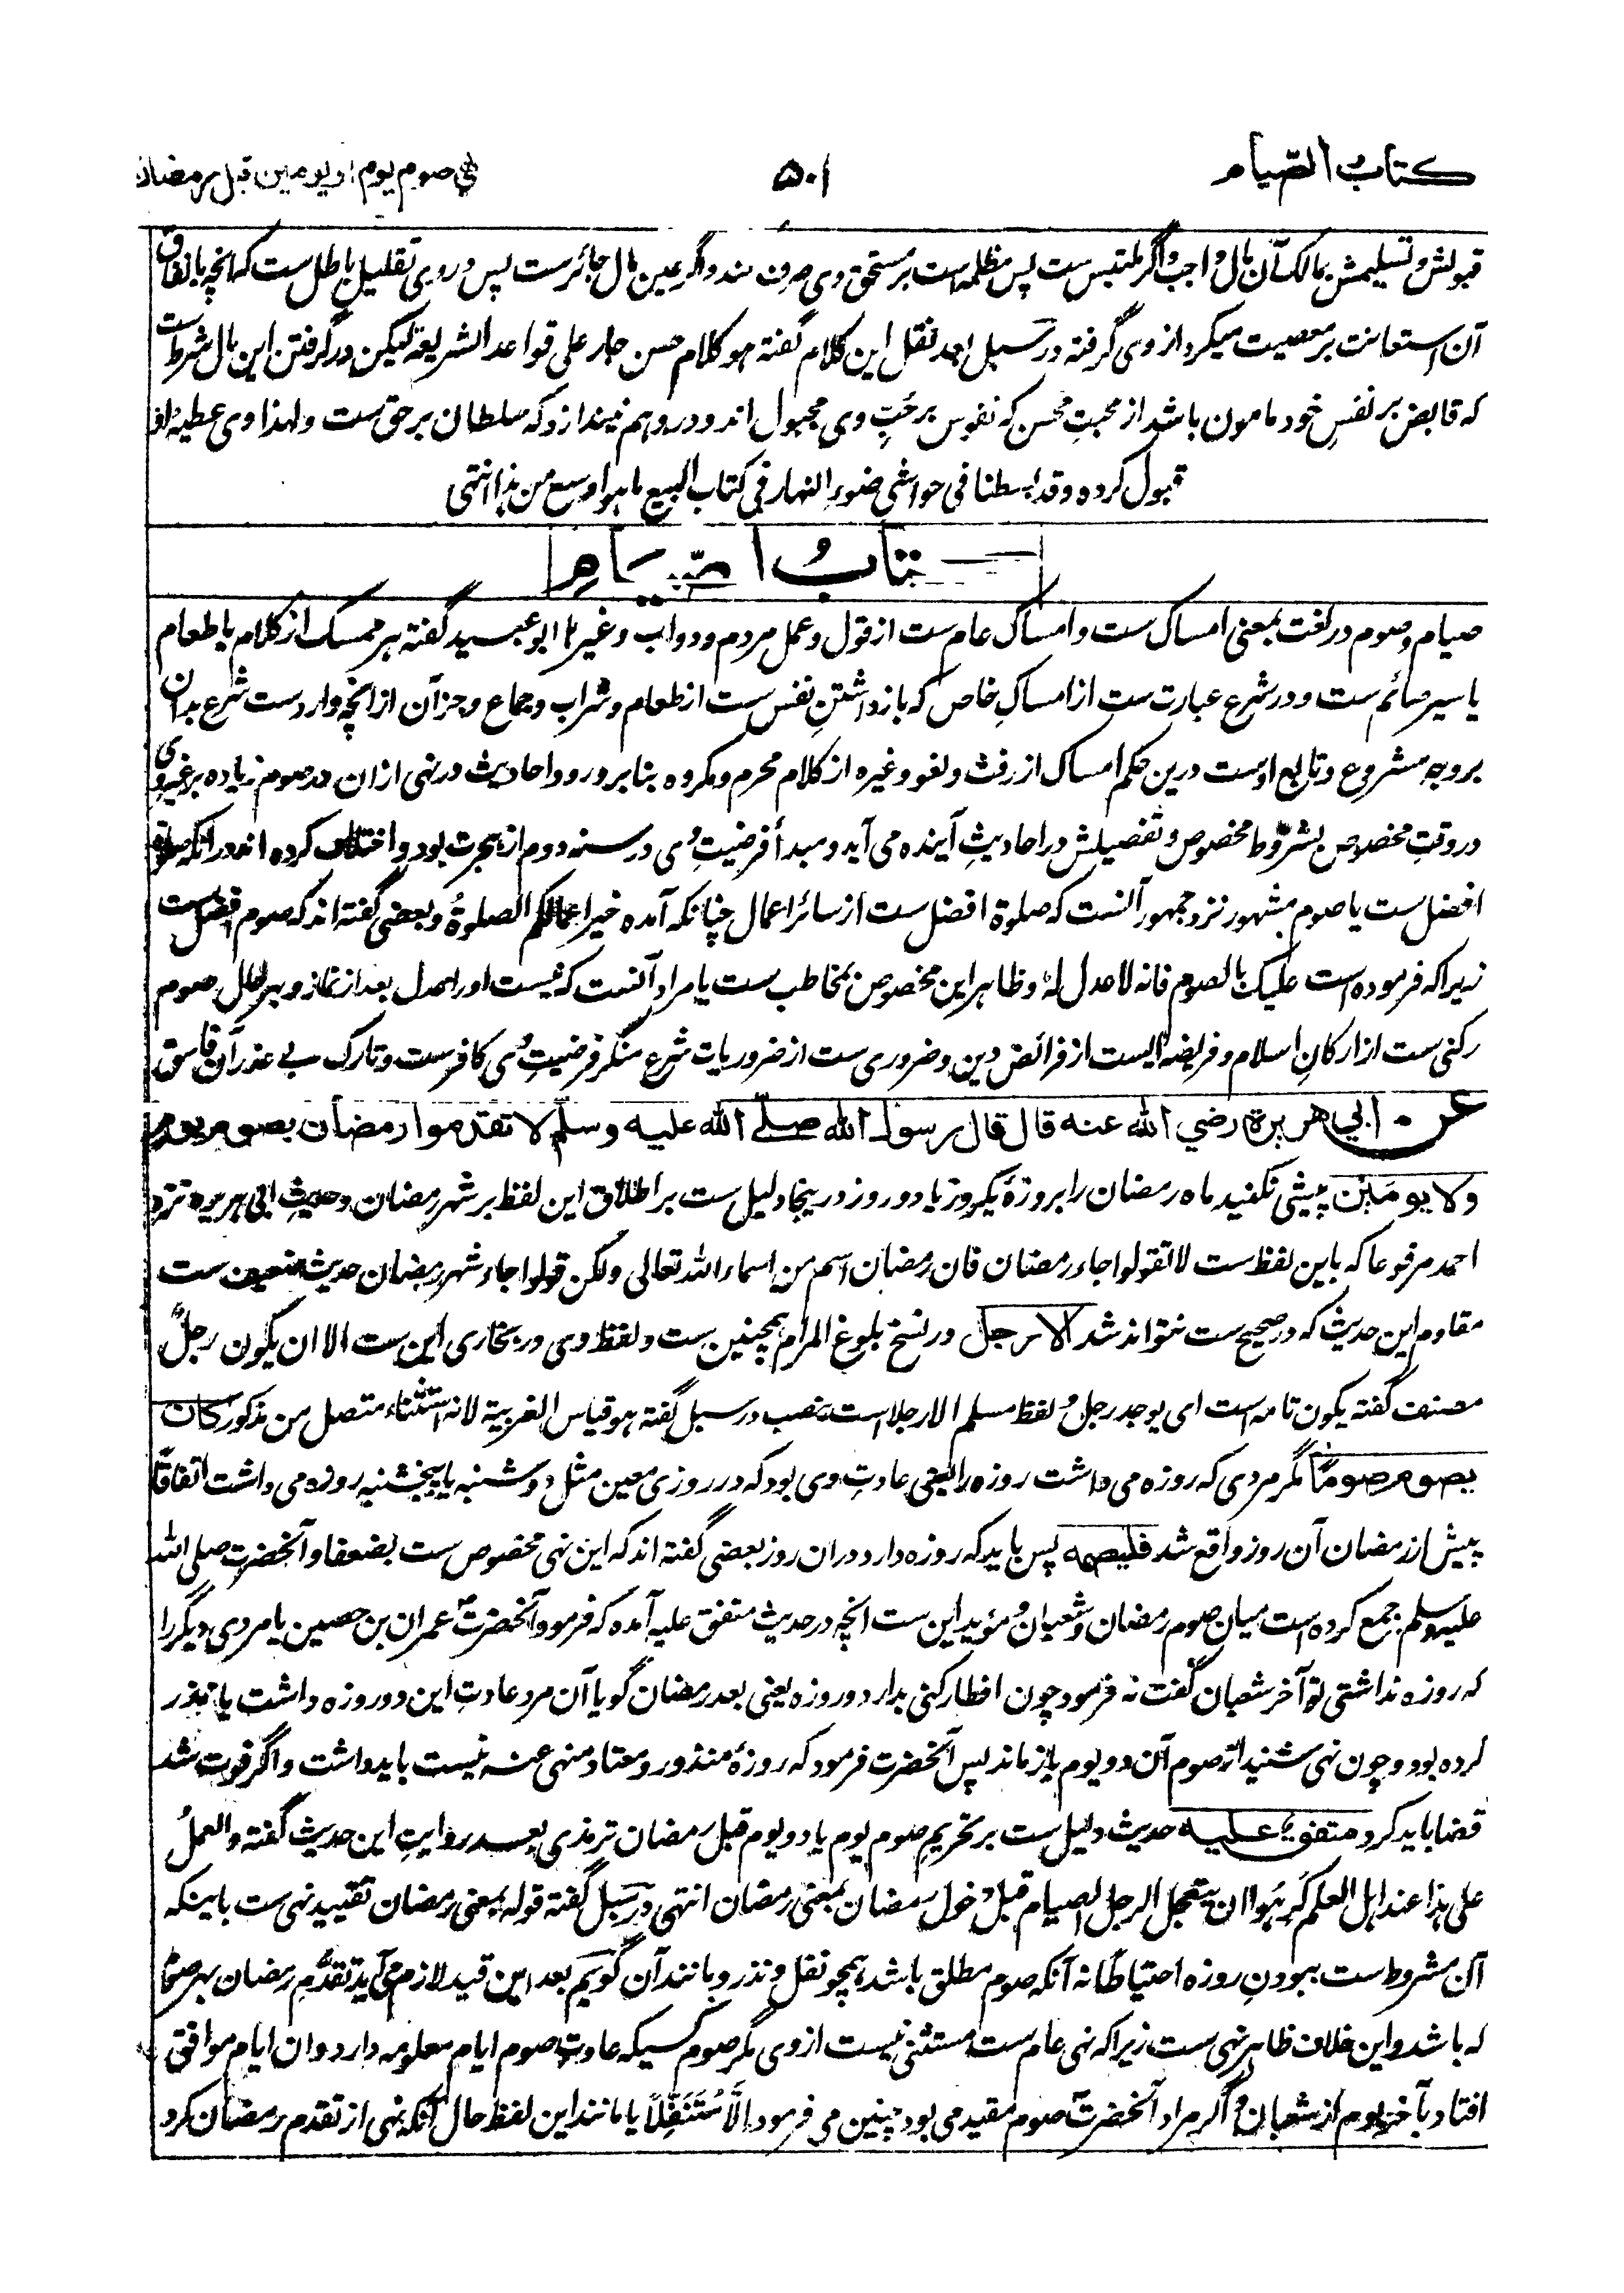 كتاب الصيام
۵۰۱
في صوم يوم او يومين قبل رمضان
قبولش و تسلیمش بمالک آن مال واجب و اگر ملتبس ست پس مظلمه است بر مستحق وی صرف کند و اگر عین مال جائرست پس در وی تقلیل باطل ست که آنچه بانفاق
آن استعانت بر معصیت میکرد از وی گرفته در سبل بعد نقل این کلام گفته هو کلام حسن جار علی قواعد الشریعة لیکن در گرفتن این مال شرط ست
که قابض بر نفس خود مامون باشد از محبت محسن که نفوس بر حب وی مجبول اند و در وهم نیندازد که سلطان بر حق ست و لهذا وی عطیه او
قبول کرده و قد بسطنا فی حواشی ضوء النهار فی کتاب البیع ما هو اوسع من هذا انتهی
كتاب الصيام
صیام و صوم در لغت بمعنی امساک ست و امساک عام ست از قول و عمل مردم و دواب و غیرها ابو عبید گفته هر ممسک از کلام یا طعام
یا سیر صائم ست و در شرع عبارت ست از امساک خاص که بازداشتن نفس ست از طعام و شراب و جماع و جز آن از آنچه وارد ست شرع بدان
بر وجه مشروع و تابع اوست درین حکم امساک از رفث و لغو و غیره از کلام محرم و مکروه بنا بر ورود احادیث در نهی ازان در صوم زیاده بر غیر وی
در وقت مخصوص بشروط مخصوص و تفصیلش در احادیث آینده می آید و مبدأ فرضیت وی در سنه دوم از هجرت بود و اختلاف کرده اند در آنکه صلوة
افضل ست یا صوم مشهور نزد جمهور آنست که صلوة افضل ست از سائر اعمال چنانکه آمده خیر اعمالکم الصلوة و بعضی گفته اند که صوم افضل ست
زیرا که فرموده است علیک بالصوم فانه لا عدل له و ظاهر این مخصوص بمخاطب ست یا مراد آنست که نیست او را عدل بعد از نماز و بهر حال صوم
رکنی ست از ارکان اسلام و فریضه ایست از فرائض دین و ضروری ست از ضروریات شرع منکر فرضیت وی کافرست و تارک بی عذر آن فاسق
عن ابي هريرة رضي الله عنه قال قال رسول الله صلى الله عليه وسلم لا تقدموا رمضان بصوم يوم
ولا يومين پیشی نکنید ماه رمضان را بروزه یکروز یا دو روز درینجا دلیل ست بر اطلاق این لفظ بر شهر رمضان و حدیث ابی هریره نزد
احمد مرفوعا که باین لفظ ست لا تقولوا جاء رمضان فان رمضان اسم من اسماء الله تعالی و لکن قولوا جاء شهر رمضان حدیث ضعیف ست
مقاوم این حدیث که در صحیح ست نتواند شد الا رجل در نسخ بلوغ المرام همچنین ست و لفظ وی در بخاری این ست الا ان یکون رجلٌ
مصنف گفته یکون تامه است ای یوجد رجل و لفظ مسلم الا رجلا است بنصب در سبل گفته هو قیاس العربیة لانه استثناء متصل من مذکور كان
يصوم صوما مگر مردی که روزه می داشت روزه را یعنی عادت وی بود که در روزی معین مثل دوشنبه یا پنجشنبه روزه می داشت اتفاقًا
پیش از رمضان آن روز واقع شد فليصمه پس باید که روزه دارد دران روز بعضی گفته اند که این نهی مخصوص ست بضعفا و آنحضرت صلی الله
علیه وسلم جمع کرده است میان صوم رمضان و شعبان و مؤید این ست آنچه در حدیث متفق علیه آمده که فرمود آنحضرت عمران بن حصین یا مردی دیگر را
که روزه نداشتی تو آخر شعبان گفت نه فرمود چون افطار کنی بدار دو روزه یعنی بعد رمضان گویا آن مرد عادت این دو روزه داشت یا نذر
کرده بود و چون نهی شنید از صوم آن دو یوم باز ماند پس آنحضرت فرمود که روزه منذور و معتاد منهی عنه نیست باید داشت و اگر فوت شد
قضا باید کرد متفق عليه حدیث دلیل ست بر تحریم صوم یوم یا دو یوم قبل رمضان ترمذی بعد روایت این حدیث گفته و العمل
علی هذا عند اهل العلم کَرِهُوا ان یتعجل الرجل الصیام قبل دخول رمضان بمعنی رمضان انتهی در سبل گفته قوله بمعنی رمضان تقیید نهی ست باینکه
آن مشروط ست ببودن روزه احتیاطًا نه آنکه صوم مطلق باشد همچو نفل و نذر و مانند آن گویم بعد این قید لازم می آید تقدُّم رمضان بهر صوم
که باشد و این خلاف ظاهر نهی ست زیرا که نهی عام ست مستثنی نیست از وی مگر صوم کسیکه عادت صوم ایام معلومه دارد و ان ایام موافق
افتاد بآخر یوم از شعبان و اگر مراد آنحضرت صوم مقید می بود چنین می فرمود اِلَّا مُتَنَفِّلًا یا مانند این لفظ حال آنکه نهی از تقدم رمضان کرد